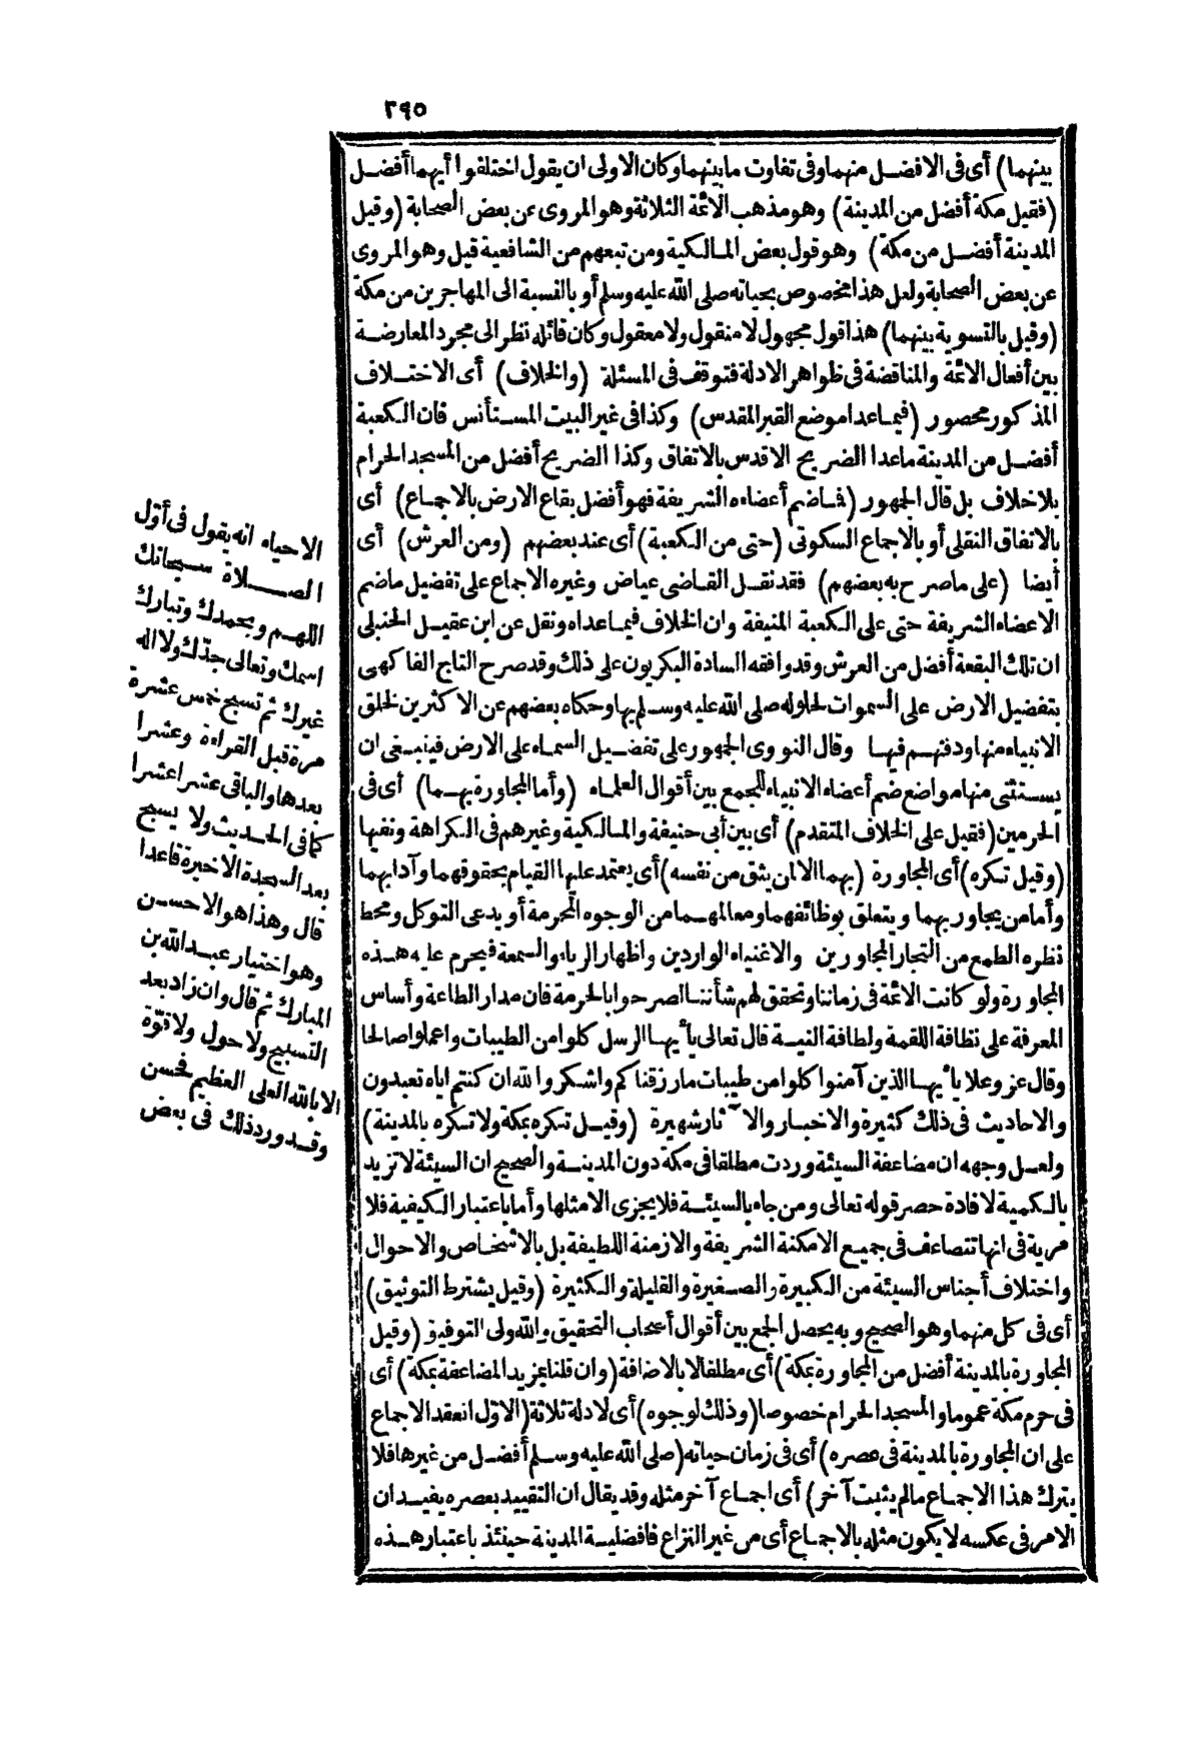 ٢٩٥
بينهما) أى فى الافضل منهما وفى تفاوت ما بينهما وكان الاولى ان يقول اختلفوا أيهما أفضل
(فقيل مكة أفضل من المدينة) وهو مذهب الائمة الثلاثة وهو المروى عن بعض الصحابة (وقيل
المدينة أفضل من مكة) وهو قول بعض المالكية ومن تبعهم من الشافعية قيل وهو المروى
عن بعض الصحابة ولعل هذا مخصوص بحياته صلى الله عليه وسلم أو بالنسبة الى المهاجرين من مكة
(وقيل بالتسوية بينهما) هذا قول مجهول لا منقول ولا معقول وكان قائله نظر الى مجرد المعارضة
بين أفعال الائمة والمناقضة فى ظواهر الادلة فتوقف فى المسئلة (والخلاف) أى الاختلاف
المذكور محصور (فيما عدا موضع القبر المقدس) وكذا فى غير البيت المستأنس فان الكعبة
أفضل من المدينة ماعدا الضريح الاقدس بالاتفاق وكذا الضريح أفضل من المسجد الحرام
بلا خلاف بل قال الجمهور (فما ضم أعضاءه الشريفة فهو أفضل بقاع الارض بالاجماع) أى
بالاتفاق النقلى أو بالاجماع السكوتى (حتى من الكعبة) أى عند بعضهم (ومن العرش) أى
أيضا (على ما صرح به بعضهم) فقد نقل القاضى عياض وغيره الاجماع على تفضيل ما ضم
الاعضاء الشريفة حتى على الكعبة المنيفة وان الخلاف فيما عداه ونقل عن ابن عقيل الحنبلى
ان تلك البقعة أفضل من العرش وقد وافقه السادة البكريون على ذلك وقد صرح التاج الفاكهى
بتفضيل الارض على السموات لحلوله صلى الله عليه وسلم بها وحكاه بعضهم عن الاكثرين لخلق
الانبياء منها ودفنهم فيها وقال النووى الجمهور على تفضيل السماء على الارض فينبغى ان
يستثنى منها مواضع ضم أعضاء الانبياء للجمع بين أقوال العلماء (وأما المجاورة بهما) أى فى
الحرمين (فقيل على الخلاف المتقدم) أى بين أبى حنيفة والمالكية وغيرهم فى الكراهة ونفيها
(وقيل تكره) أى المجاورة (بهما الا لمن يثق من نفسه) أى يعتمد عليها القيام بحقوقهما وآدابهما
وأما من يجاور بهما ويتعلق بوظائفهما ومعالمهما من الوجوه المحرمة أو يدعى التوكل ومحط
نظره الطمع من التجار المجاورين والاغنياء الواردين واظهار الرياء والسمعة فيحرم عليه هذه
المجاورة ولو كانت الائمة فى زماننا وتحقق لهم شأننا لصرحوا بالحرمة فان مدار الطاعة وأساس
المعرفة على نظافة اللقمة ولطافة النية قال تعالى يا أيها الرسل كلوا من الطيبات واعملوا صالحا
وقال عز وعلا يا أيها الذين آمنوا كلوا من طيبات ما رزقناكم واشكروا لله ان كنتم اياه تعبدون
والاحاديث فى ذلك كثيرة والاخبار والا ثار شهيرة (وقيل تكره بمكة ولا تكره بالمدينة)
ولعل وجهه ان مضاعفة السيئة وردت مطلقا فى مكة دون المدينة والصحيح ان السيئة لا تزيد
بالكمية لافادة حصر قوله تعالى ومن جاء بالسيئة فلا يجزى الا مثلها وأما باعتبار الكيفية فلا
مرية فى انها تتصاعف فى جميع الامكنة الشريفة والازمنة اللطيفة بل بالاشخاص والاحوال
واختلاف أجناس السيئة من الكبيرة والصغيرة والقليلة والكثيرة (وقيل يشترط التوثيق)
أى فى كل منهما وهو الصحيح وبه يحصل الجمع بين أقوال أصحاب التحقيق والله ولى التوفيق (وقيل
المجاورة بالمدينة أفضل من المجاورة بمكة) أى مطلقا لا بالاضافة (وان قلنا بمزيد المضاعفة بمكة) أى
فى حرم مكة عموما والمسجد الحرام خصوصا (وذلك لوجوه) أى لادلة ثلاثة (الاوّل انعقد الاجماع
على ان المجاورة بالمدينة فى عصره) أى فى زمان حياته (صلى الله عليه وسلم أفضل من غيرها فلا
يترك هذا الاجماع مالم يثبت آخر) أى اجماع آخر مثله وقد يقال ان التقييد بعصره يفيد ان
الامر فى عكسه لا يكون مثله بالاجماع أى من غير النزاع فافضلية المدينة حينئذ باعتبار هذه
الاحياء انه يقول فى أوّل
الصلاة سبحانك
اللهم وبحمدك وتبارك
اسمك وتعالى جدّك ولا اله
غيرك ثم تسبح خمس عشرة
مرة قبل القراءة وعشرا
بعدها والباقى عشرا عشرا
كما فى الحديث ولا يسبح
بعد السجدة الاخيرة قاعدا
قال وهذا هو الاحسن
وهو اختيار عبد الله بن
المبارك ثم قال وان زاد بعد
التسبيح ولا حول ولا قوّة
الا بالله العلى العظيم فحسن
وقد ورد ذلك فى بعض